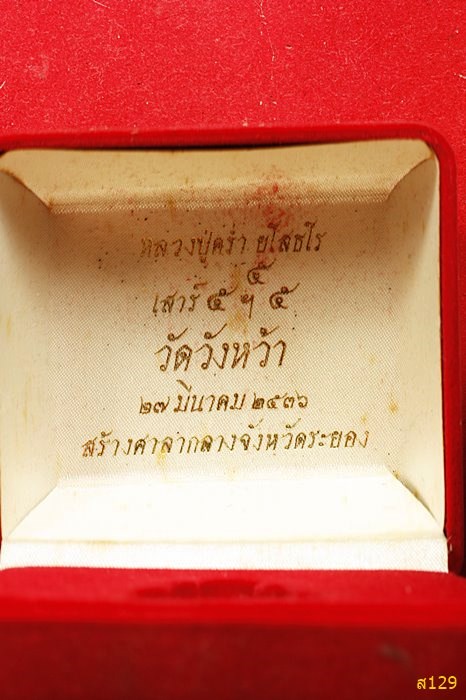 หลวงปู่คร่ำ ยโสธโร
๕
เสาร์ ๕ ฯ ๕
วัดวังหว้า
๒๗ มีนาคม ๒๕๓๖
สร้างศาลากลางจังหวัดระยอง
ส129